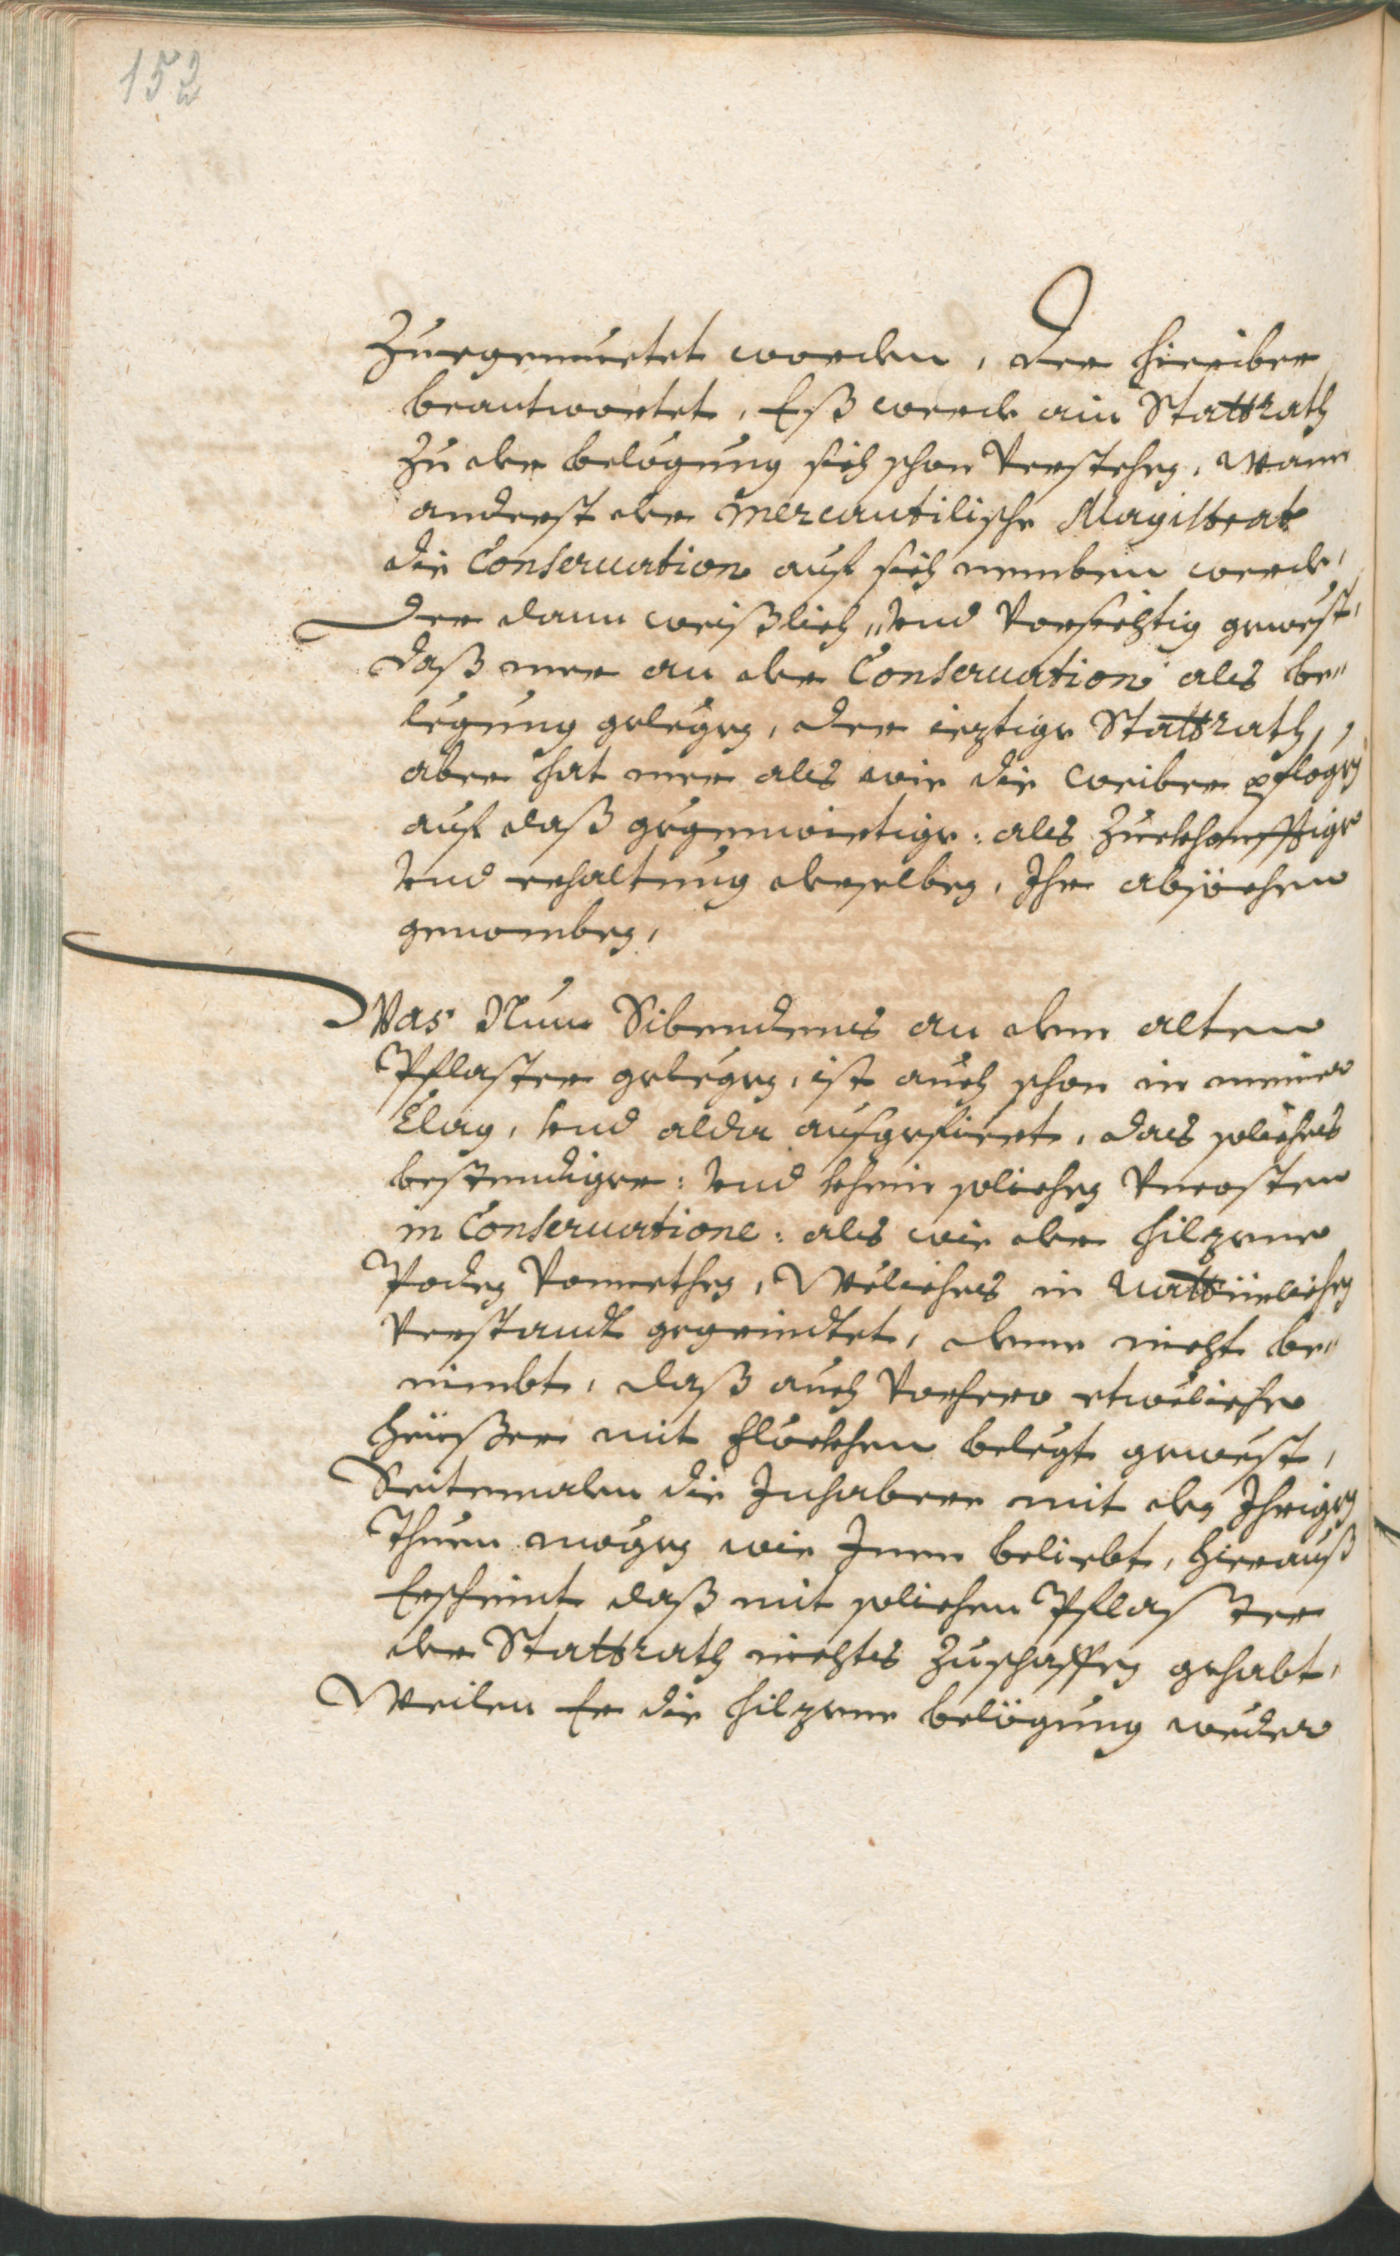 152
Zuegemuetet worden, der hierüber
beantwortet, Eß werde ain Stattrath
zu der belögung sich schon verstehen, wann
anderst der mercantilische Magistrat
die Conseruation auf sich nemben werde,
Der dann weißlich, vnd vorsichtig gewest,
daß mer an der Conseruation als be„
legung gelegen, der ieztige Stattrath,
aber hat mer als wie die weiber pflegen
auf daß gegenwürtige: als Zuekhonfftige
vnd erhaltung derselben, Ihr absöehen
genomben,
Was Nun Sibendens an dem alten
Pflaster gelegen, ist auch schon in meiner
Clag, vnd alda aufgefüert, das soliches
bestendiger: vnd khein solichen Vncosten
in Conseruatione: als wie der hilzene
Poden vonnethen, Weliches in natürlichen
Verstandt gegrindtet, deme nicht be„
nimbt, daß auch vorhero etweliche
heüßer mit flöckhen belegt gewest,
Seitemalen die Inhabere mit den Ihrigen
Thuen mögen wie Inen beliebt, hierauß
Erscheint daß mit solichen Pflaster
der Stattrath nichts zuschaffen gehabt,
Weilen Er die hilzene belögung weder